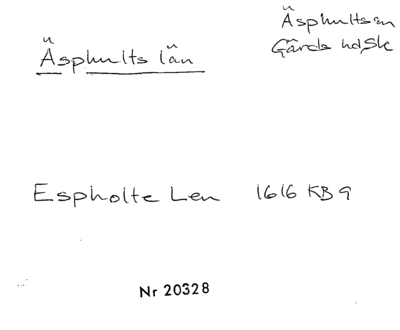 Äsphults län
Äsphults sn
Gärds hd, Sk
Espholte Len 1616 KB 9
Nr 20328